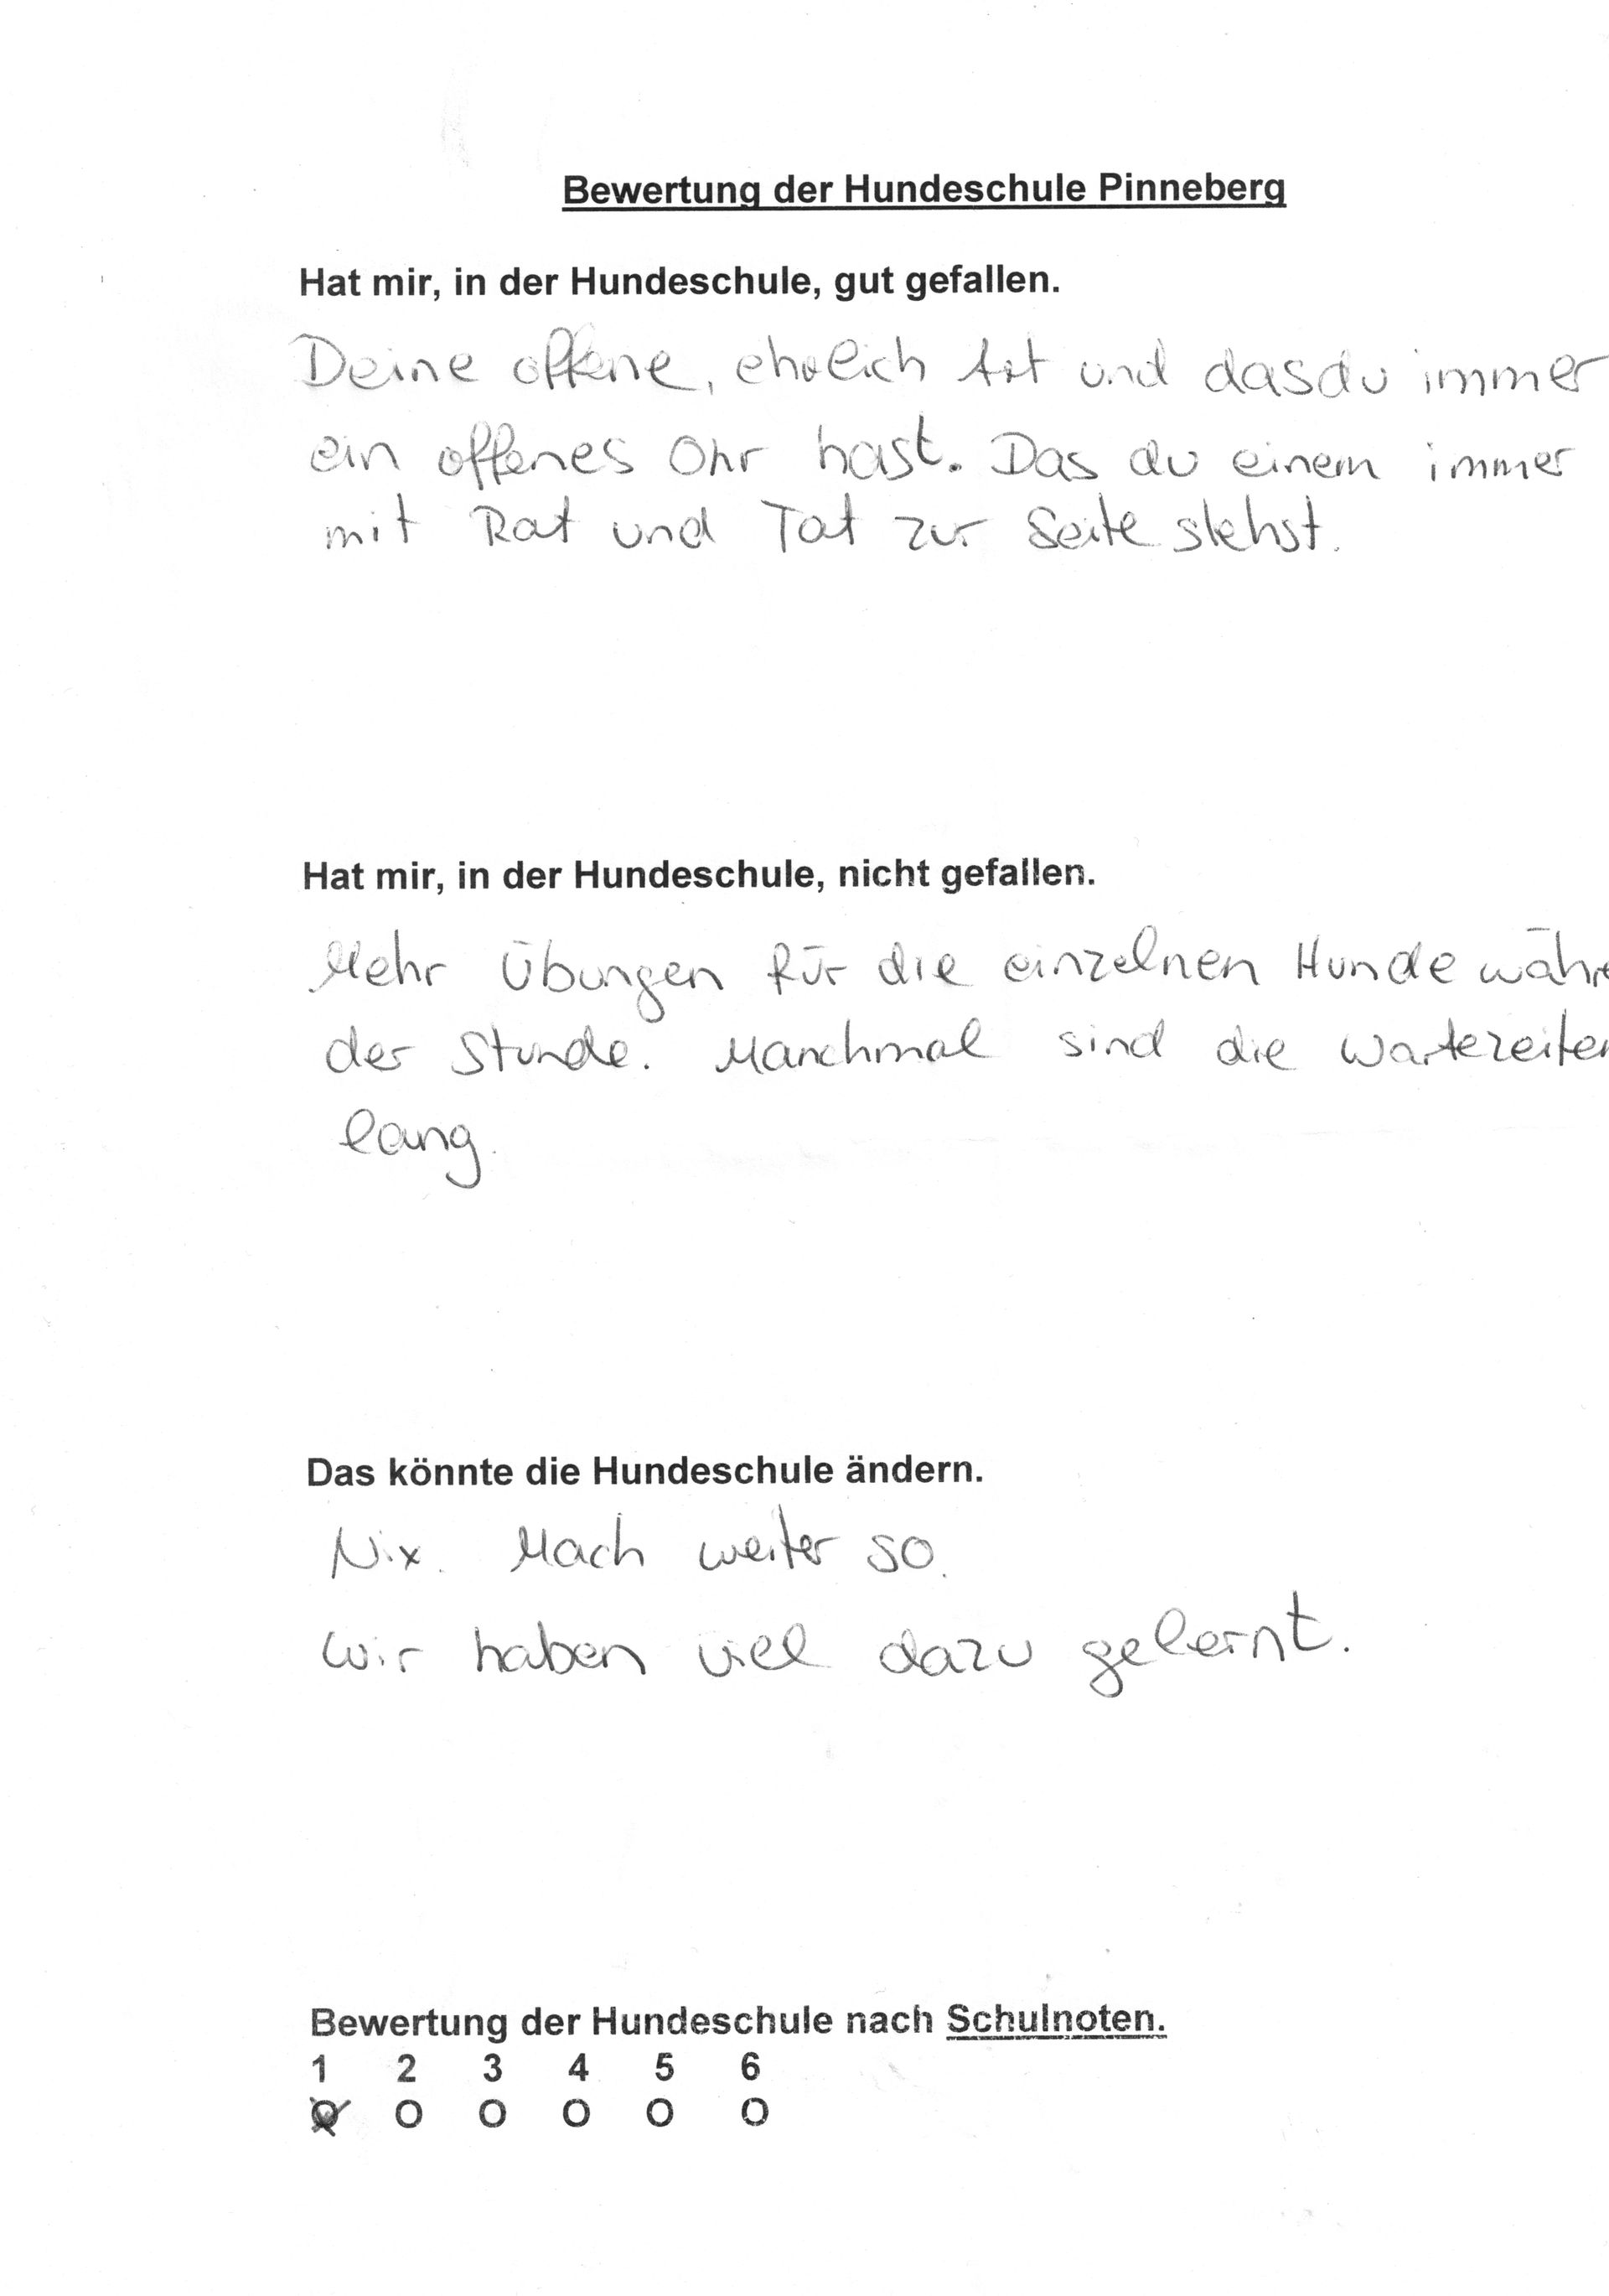 Bewertung der Hundeschule Pinneberg
Hat mir, in der Hundeschule, gut gefallen.
Deine offene, ehrlich Art und dasdu immer
ein offenes Ohr hast. Das du einem immer
mit Rat und Tat zur Seite stehst.
Hat mir, in der Hundeschule, nicht gefallen.
Mehr Übungen für die einzelnen Hunde währe
der Stunde. Manchmal sind die Wartezeiten
lang.
Das könnte die Hundeschule ändern.
Nix. Mach weiter so.
Wir haben viel dazu gelernt.
Bewertung der Hundeschule nach Schulnoten.
1 2 3 4 5 6
O O O O O O